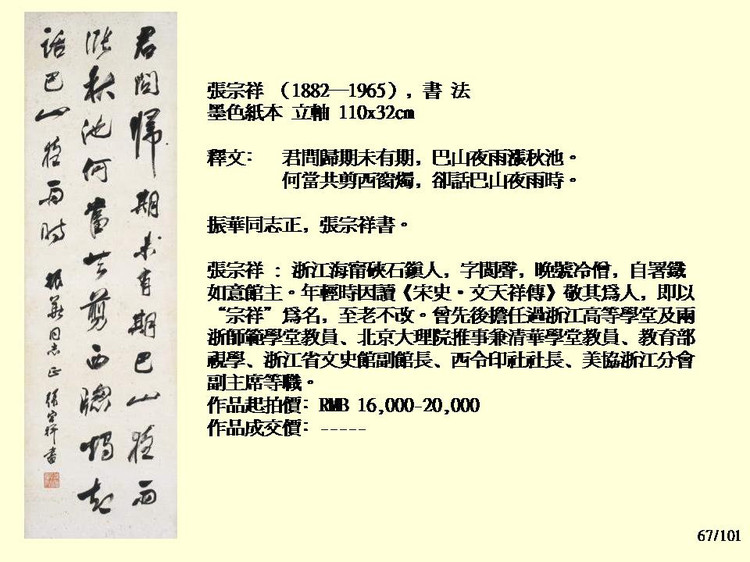 君問歸期未有期巴山夜雨
漲秋池何當共剪西窗燭却
話巴山夜雨時
振華同志正 張宗祥書
張宗祥 （1882—1965），書 法
墨色紙本 立軸 110x32cm
釋文： 君問歸期未有期，巴山夜雨漲秋池。
何當共剪西窗燭，卻話巴山夜雨時。
振華同志正，張宗祥書。
張宗祥 ：浙江海甯硤石鎮人，字閬聲，晚號冷僧，自署鐵
如意館主。年輕時因讀《宋史·文天祥傳》敬其爲人，即以
“宗祥”爲名，至老不改。曾先後擔任過浙江高等學堂及兩
浙師範學堂教員、北京大理院推事兼清華學堂教員、教育部
視學、浙江省文史館副館長、西令印社社長、美協浙江分會
副主席等職。
作品起拍價：RMB 16,000-20,000
作品成交價：-----
67/101